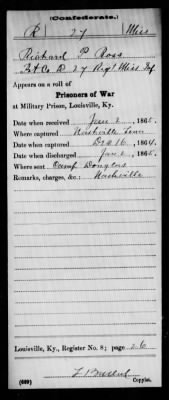 (Confederate.)
R 27 Miss
Richard P Ross
Pvt Co. D 27 Regt Miss Inf
Appears on a roll of
Prisoners of War
at Military Prison, Louisville, Ky.
Date when received Jan 2, 1865.
Where captured Nashville Tenn
Date when captured Dec 16, 1864.
Date when discharged Jan 2, 1865.
Where sent Camp Douglas
Remarks, charges, &c.: Nashville
Louisville, Ky., Register No. 8; page 26
(639)
Copyist.